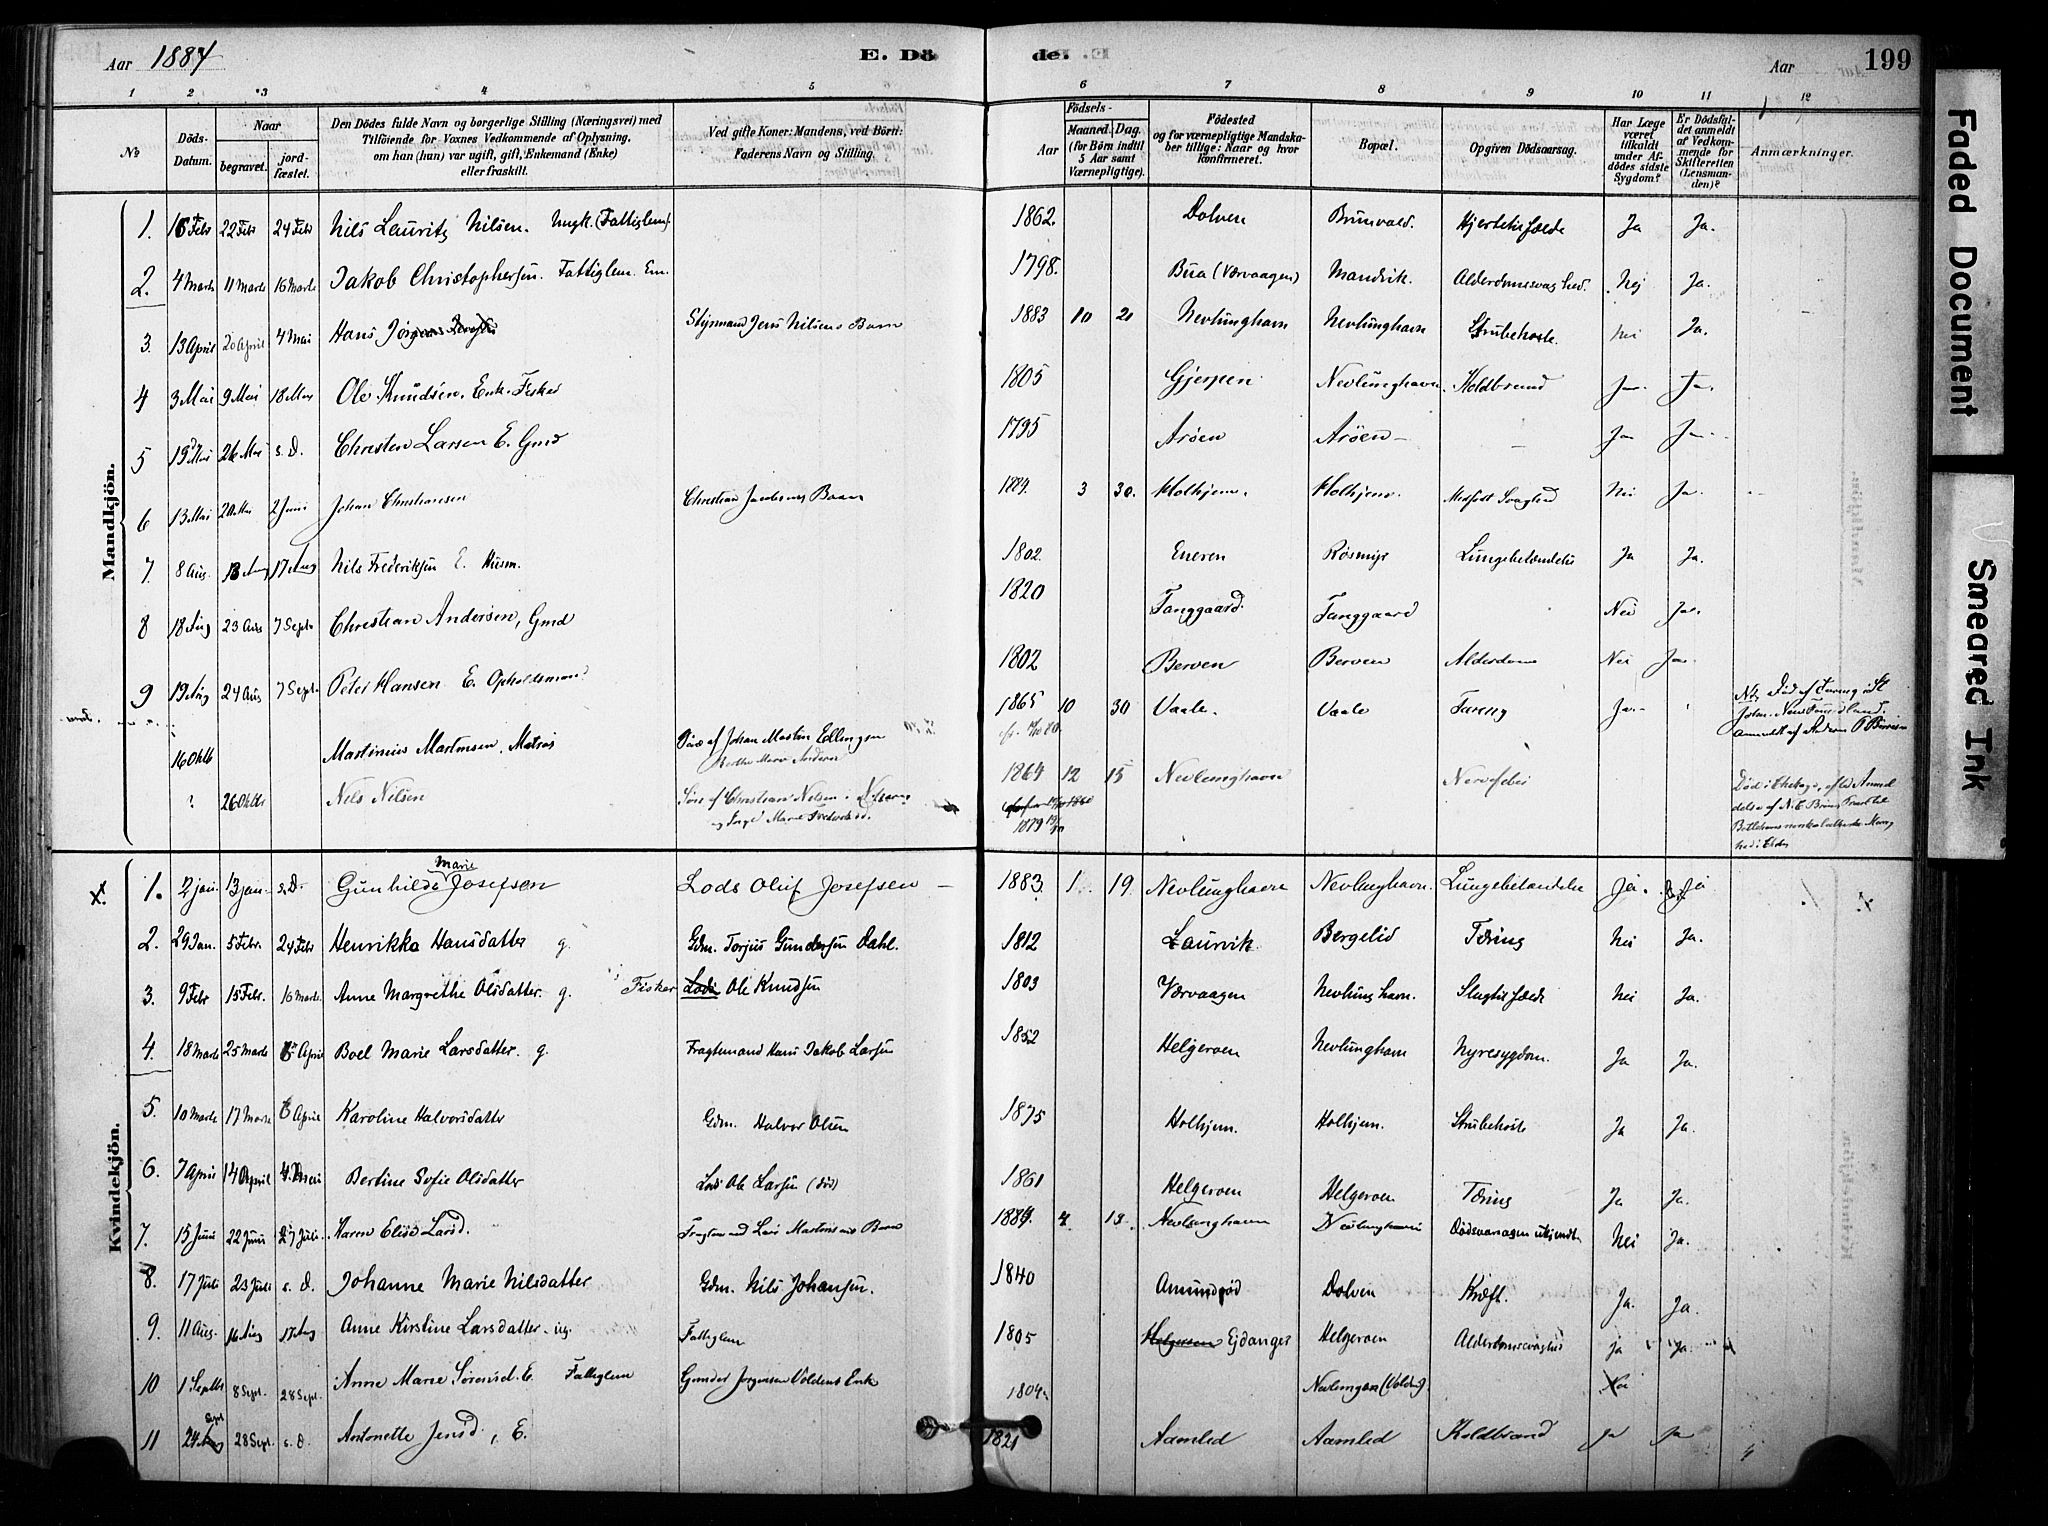 Aar 1884 E. Dö de. Aar 199
1 2 3 4 5 6 7 8 9 10 11 12
No Döds-Datum. Naar begravet. jordfæstet. Den Dödes fulde Navn og borgerlige Stilling (Næringsvei) med Tilföiende for Voxnes Vedkommende af Oplysning. om han (hun) var ugift, gift, Enkemand (Enke) eller fraskilt. Ved gifte Koner: Mandens, ved Börn: Faderens Navn og Stilling. Aar Födsels- Maaned. Dag. (for Börn indtil 5 Aar samt Værnepligtige). Födested og for værnepligtige Mandskaber tillige: Naar og hvor konfirmeret. Bopæl. Opgiven Dödsaarsag. Har Læge været tilkaldt under Afdödes sidste Sygdom? Er Dödsfaldet anmeldt af Vedkommende for Skifteretten (Lensmanden)? Anmærkninger.
Mandkjön.
1. 16 Febr 22 Febr 24 Febr Nils Lauritz Nilsen. Ungk. (Fattiglem) 1862. Dolven Brunvald. Hjertetilfælde Ja Ja.
2. 4 Marts 11 Marts 16 Marts Jakob Christophersen. Fattiglem. Em. 1798. Bua (Værvaagen) Mandvik. Alderdomssvaghed. Nej Ja.
3. 13 April 20 April 4 Mai Hans Jörgen Styrmand Jens Nilsens Barn 1883 10 20 Nevlunghavn Nevlunghavn Strubehoste. Nei Ja.
4 3 Mai 9 Mai 18 Mai Ole Knudsen. Enk. Fisker 1805 Gjerpen Nevlunghavn. Koldbrand Ja. Ja.
5 19 Mai 26 Mai s. D. Christen Larsen E. Gmd 1795 Aröen Aröen - - Ja Ja.
6 13 Mai 20 Mai 2 Juni Johan Christiansen Christian Jacobsens Barn 1884. 3 30. Holhjem. Holhjem. Medfødt Svaghed Nei Ja.
7. 8 Aug. 13 Aug 17 Aug Nils Frederiksen E. Husm. 1802. Eneren Røsmyr Lungebetændelse Ja Ja.
8 18 Aug 23 Aug 7 Sept. Christian Andersen, Gmd 1820 Tanggaard. Tanggaard Nei Ja.
9 19 Aug 24 Aug 7 Sept. Peter Hansen E. Opholdsmand 1802 Berven Berven Alderdom Nei Ja.
16 Oktb Martinius Martinsen, Matros Søn af Johan Martin Ellingsen 1865 10 30 Vaale. Vaale Tæring Ja. NB. Død af Tæring i St John. New Foundland. Anmeldt af
? 26 Oktbr Nils Nilsen Søn af Christian Nilsen i 1864 12 15 Nevlunghavn Nervefeber Død i Chicago, efter Anmeldelse af
Kvindekjön.
x. 1. 2 Jan. 13 Jan. s. D. Gunhilde Marie Josefsen Lods Oluf Josefsen - 1883. 1 19. Nevlunghavn Nevlunghavn. Lungebetændelse Ja. Ja
2. 29 Jan. 5 Febr. 24 Febr Henrikka Hansdatter g. Gdm. Torjus Gundersen Dahl. 1812 Laurvik. Bergelid Tæring Nei Ja.
3. 9 Febr 15 Febr. 16 Marts Anne Margrethe Olsdatter. g. Fisker Lods Ole Knudsen 1803 Værvaagen Nevlunghavn. Slagtilfælde Nei Ja.
4. 18 Marts 25 Marts 6 April Boel Marie Larsdatter. g. Fragtemand Hans Jakob Larsen 1852 Helgeroen Nevlunghavn Nyresygdom. Ja Ja.
5. 10 Marts 17 Marts 6 April Karoline Halvorsdatter Gdm. Halvor Olsen 1875 Holhjem. Holhjem. Strubehoste Ja Ja.
6. 7 April 14 April 4. Mai Bertine Sofie Olsdatter Lods Ole Larsen (død) 1861 Helgeroen Helgeroen Tæring Ja Ja.
7. 15 Juni 22 Juni 27 Juli. Karen Elise Larsd. Fragtemand Lars Martinsens Barn 1884. 4 13. Nevlunghavn Nevlunghavn Dödsaarsagen ukjendt. Nei Ja.
8. 17 Juli 23 Juli s. D. Johanne Marie Nilsdatter Gdm. Nils Johansen. 1840 Amundröd Dolven Kræft. Ja. Ja.
9. 11 Aug. 16 Aug 17 Aug Anne Kirstine Larsdatter. ug. Fattiglem 1805 Helgeroen Ejdanger Helgeroen Alderdomssvaghed Ja Ja.
10 1 Septbr 8 Sept. 28 Sept. Anne Marie Sörensd. E. Fattiglem Gunder Jörgensen Voldens Enke 1804. Nevlunghavn (Volden). Nei
11 24 Sept 28 Sept. s. D. Antonette Jensd., E. 1821 Aamlid Aamlid Koldbrand Ja Ja
Faded Document
Smeared Ink